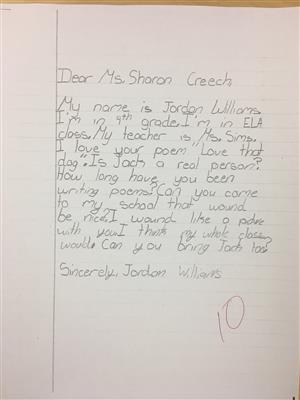 Dear Ms. Sharon Creech,
My name is Jordan Williams.
I'm in 4th grade. I'm in ELA
class. My teacher is Ms. Sims.
I love your poem "Love that
dog". Is Jack a real person?
How long have you been
writing poems? Can you come
to my school that wound
be nice. I wound like a
with you. I think my whole class
would. Can you bring Jack too?
Sincerely, Jordan Williams
10